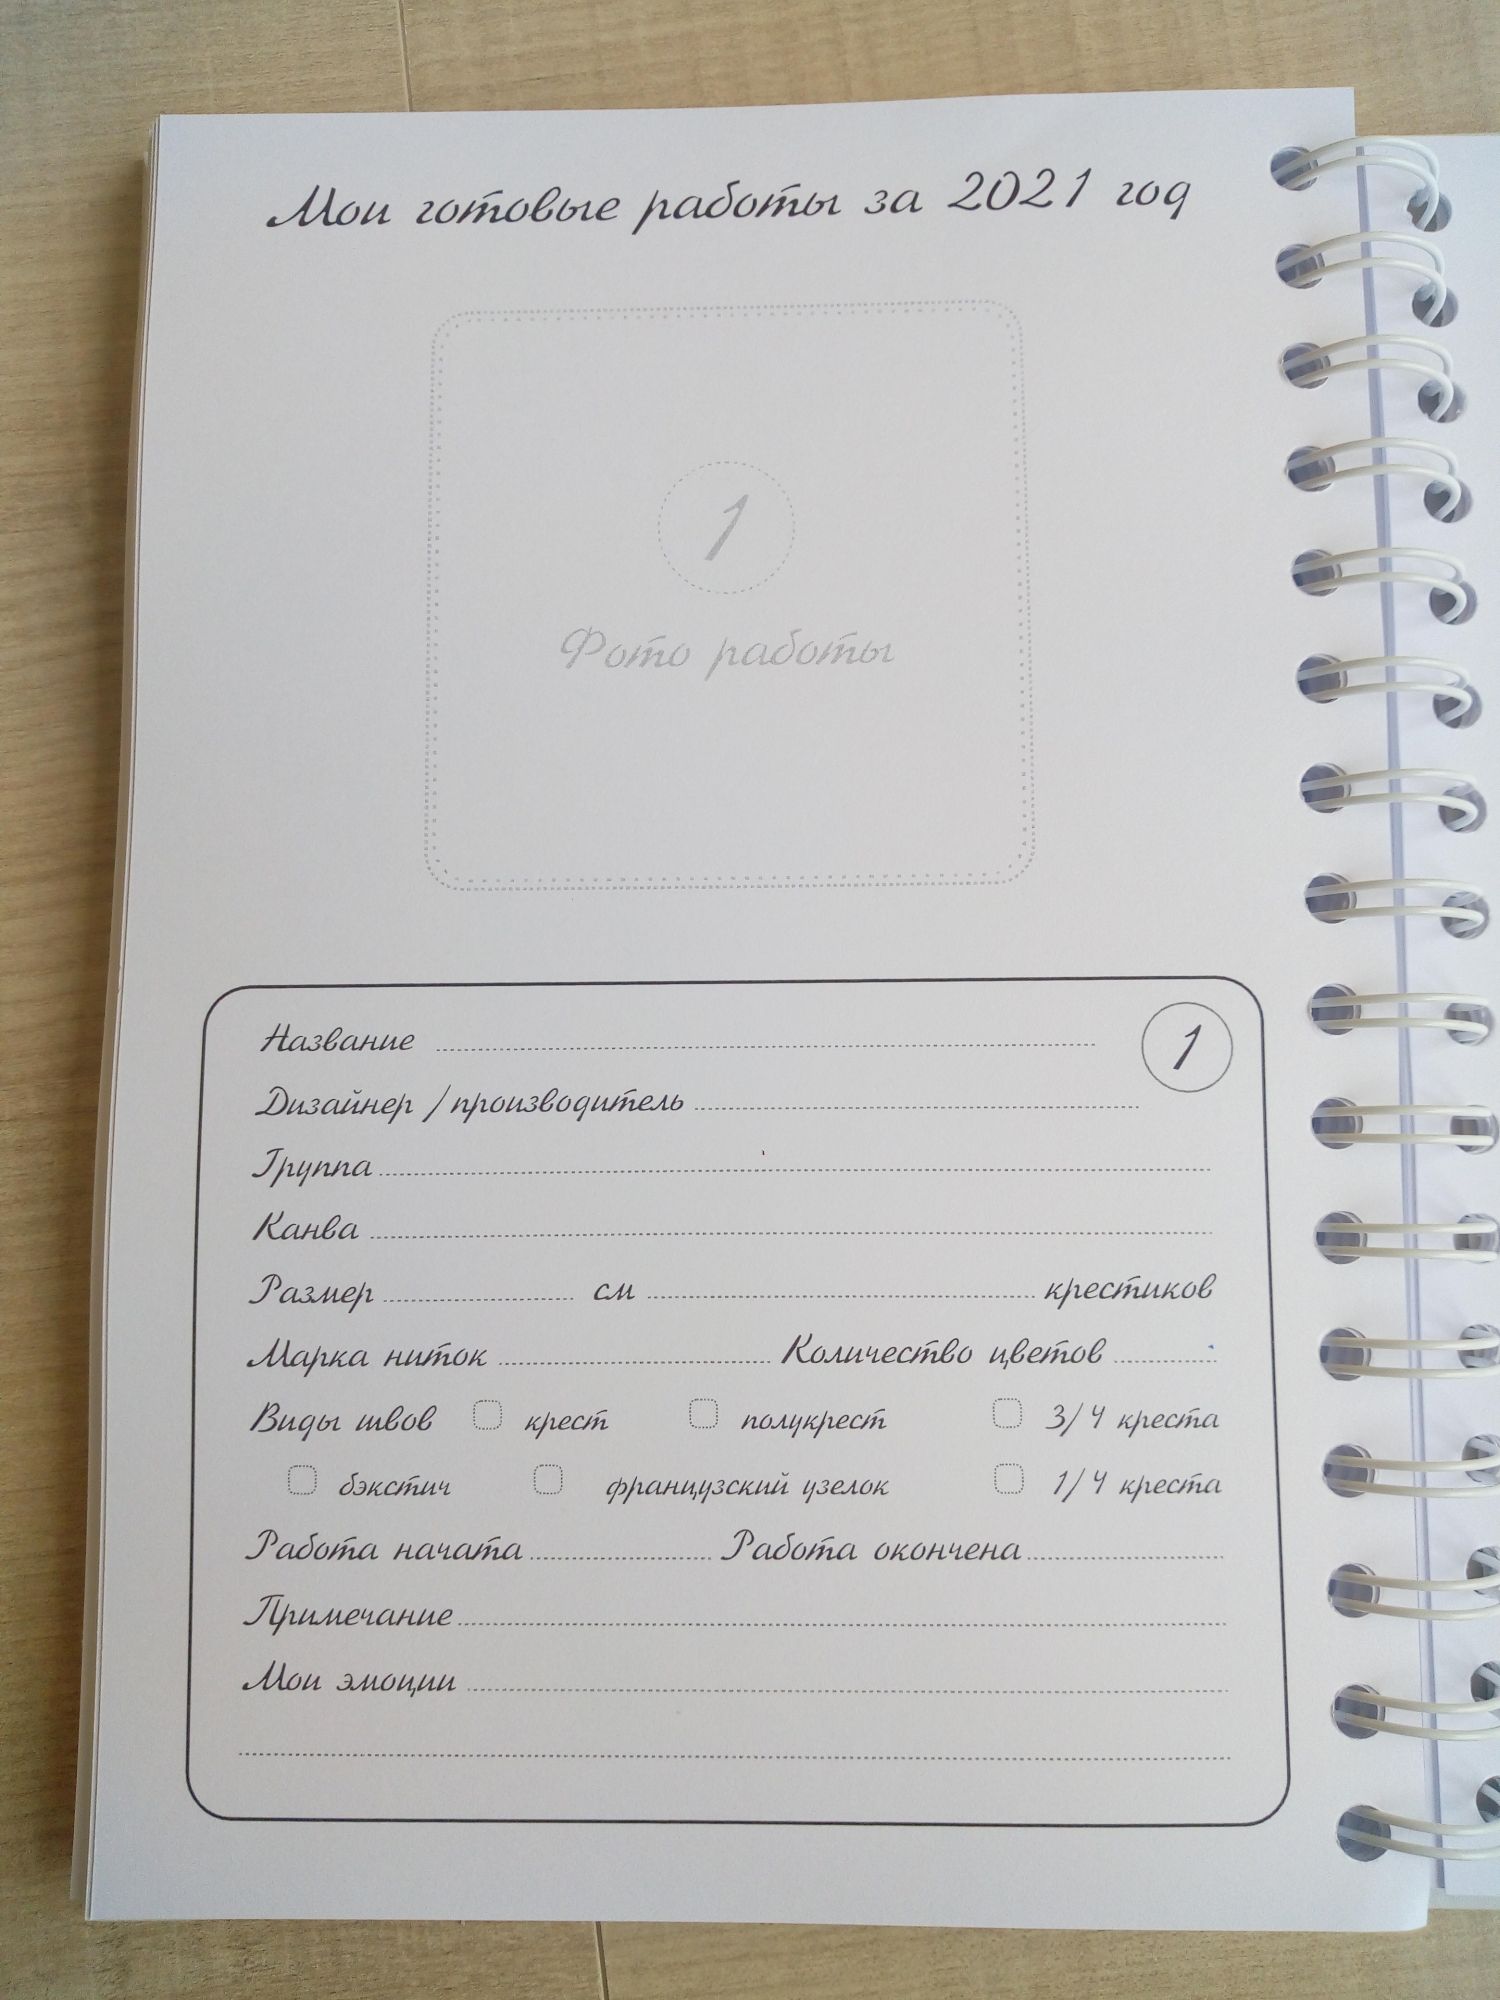 Мои готовые работы за 2021 год
1
Фото работы
1
Название
Дизайнер / производитель
Группа
Канва
Размер см крестиков
Марка ниток Количество цветов
Виды швов крест полукрест 3/4 креста
бэкстич французский узелок 1/4 креста
Работа начата Работа окончена
Примечание
Мои эмоции